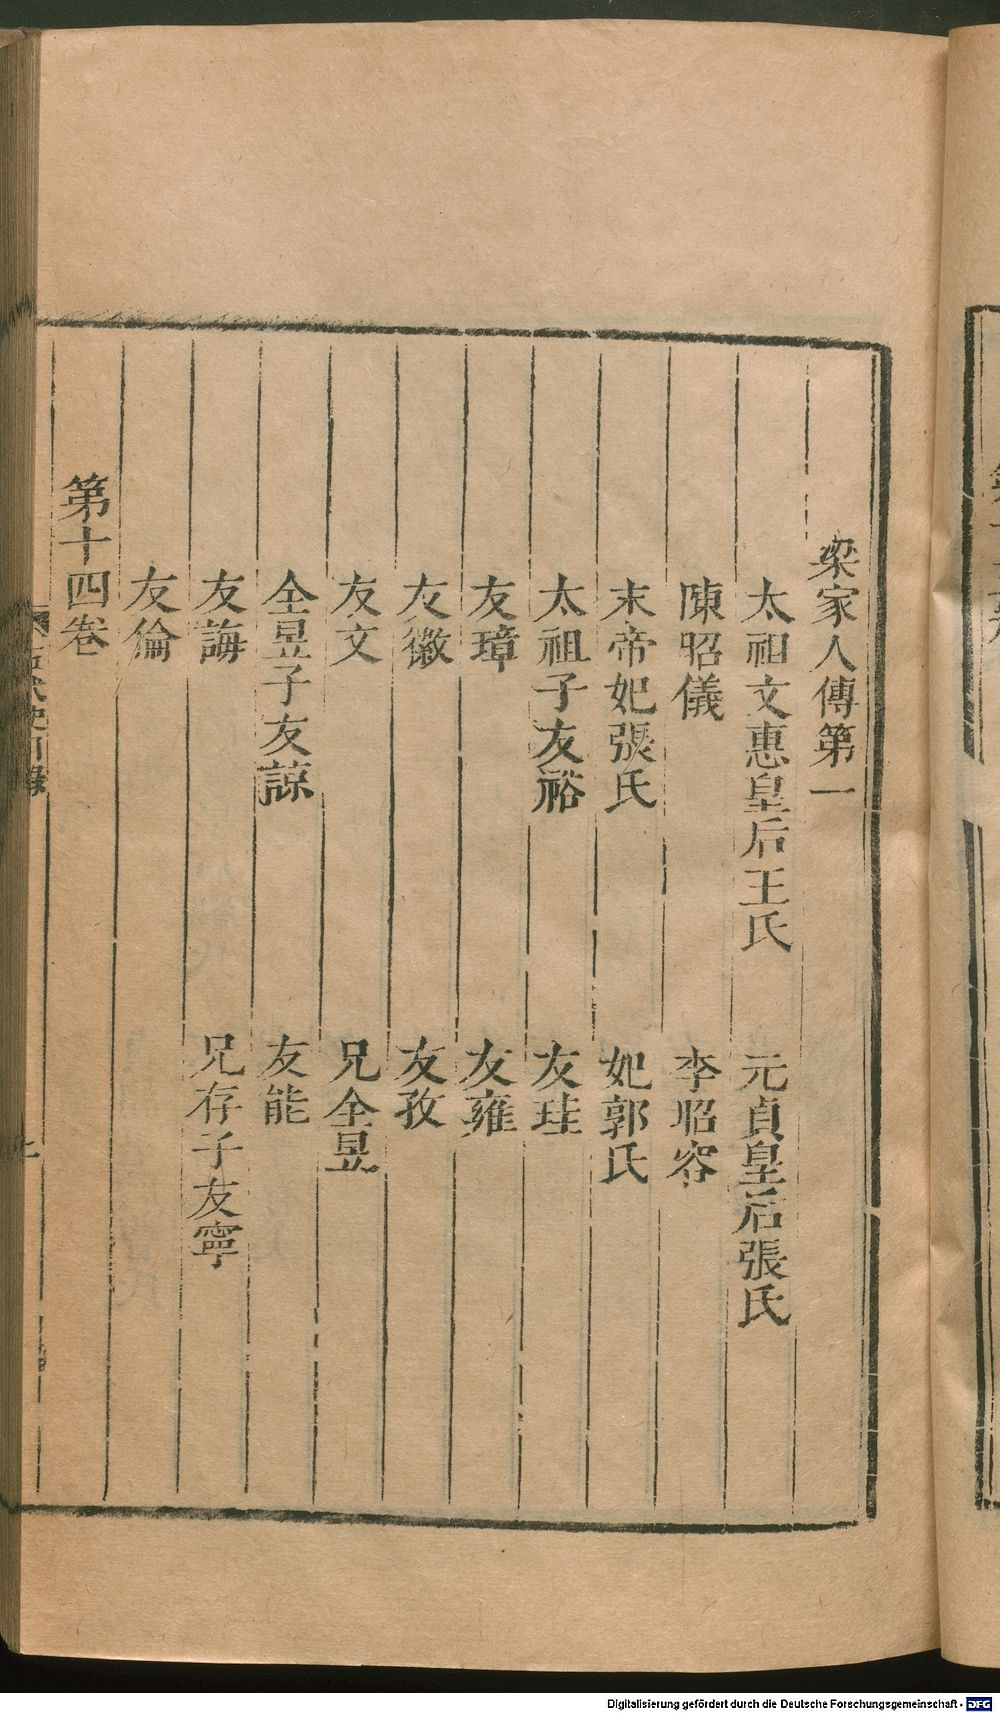 梁家人傳第一
太祖文惠皇后王氏　元貞皇后張氏
陳昭儀　李昭容
末帝妃張氏　妃郭氏
太祖子友裕　友珪
友璋　友雍
友徽　友孜
友文　兄全昱
全昱子友諒　友能
友誨　兄存子友寧
友倫
第十四卷
Digitalisierung gefördert durch die Deutsche Forschungsgemeinschaft - DFG